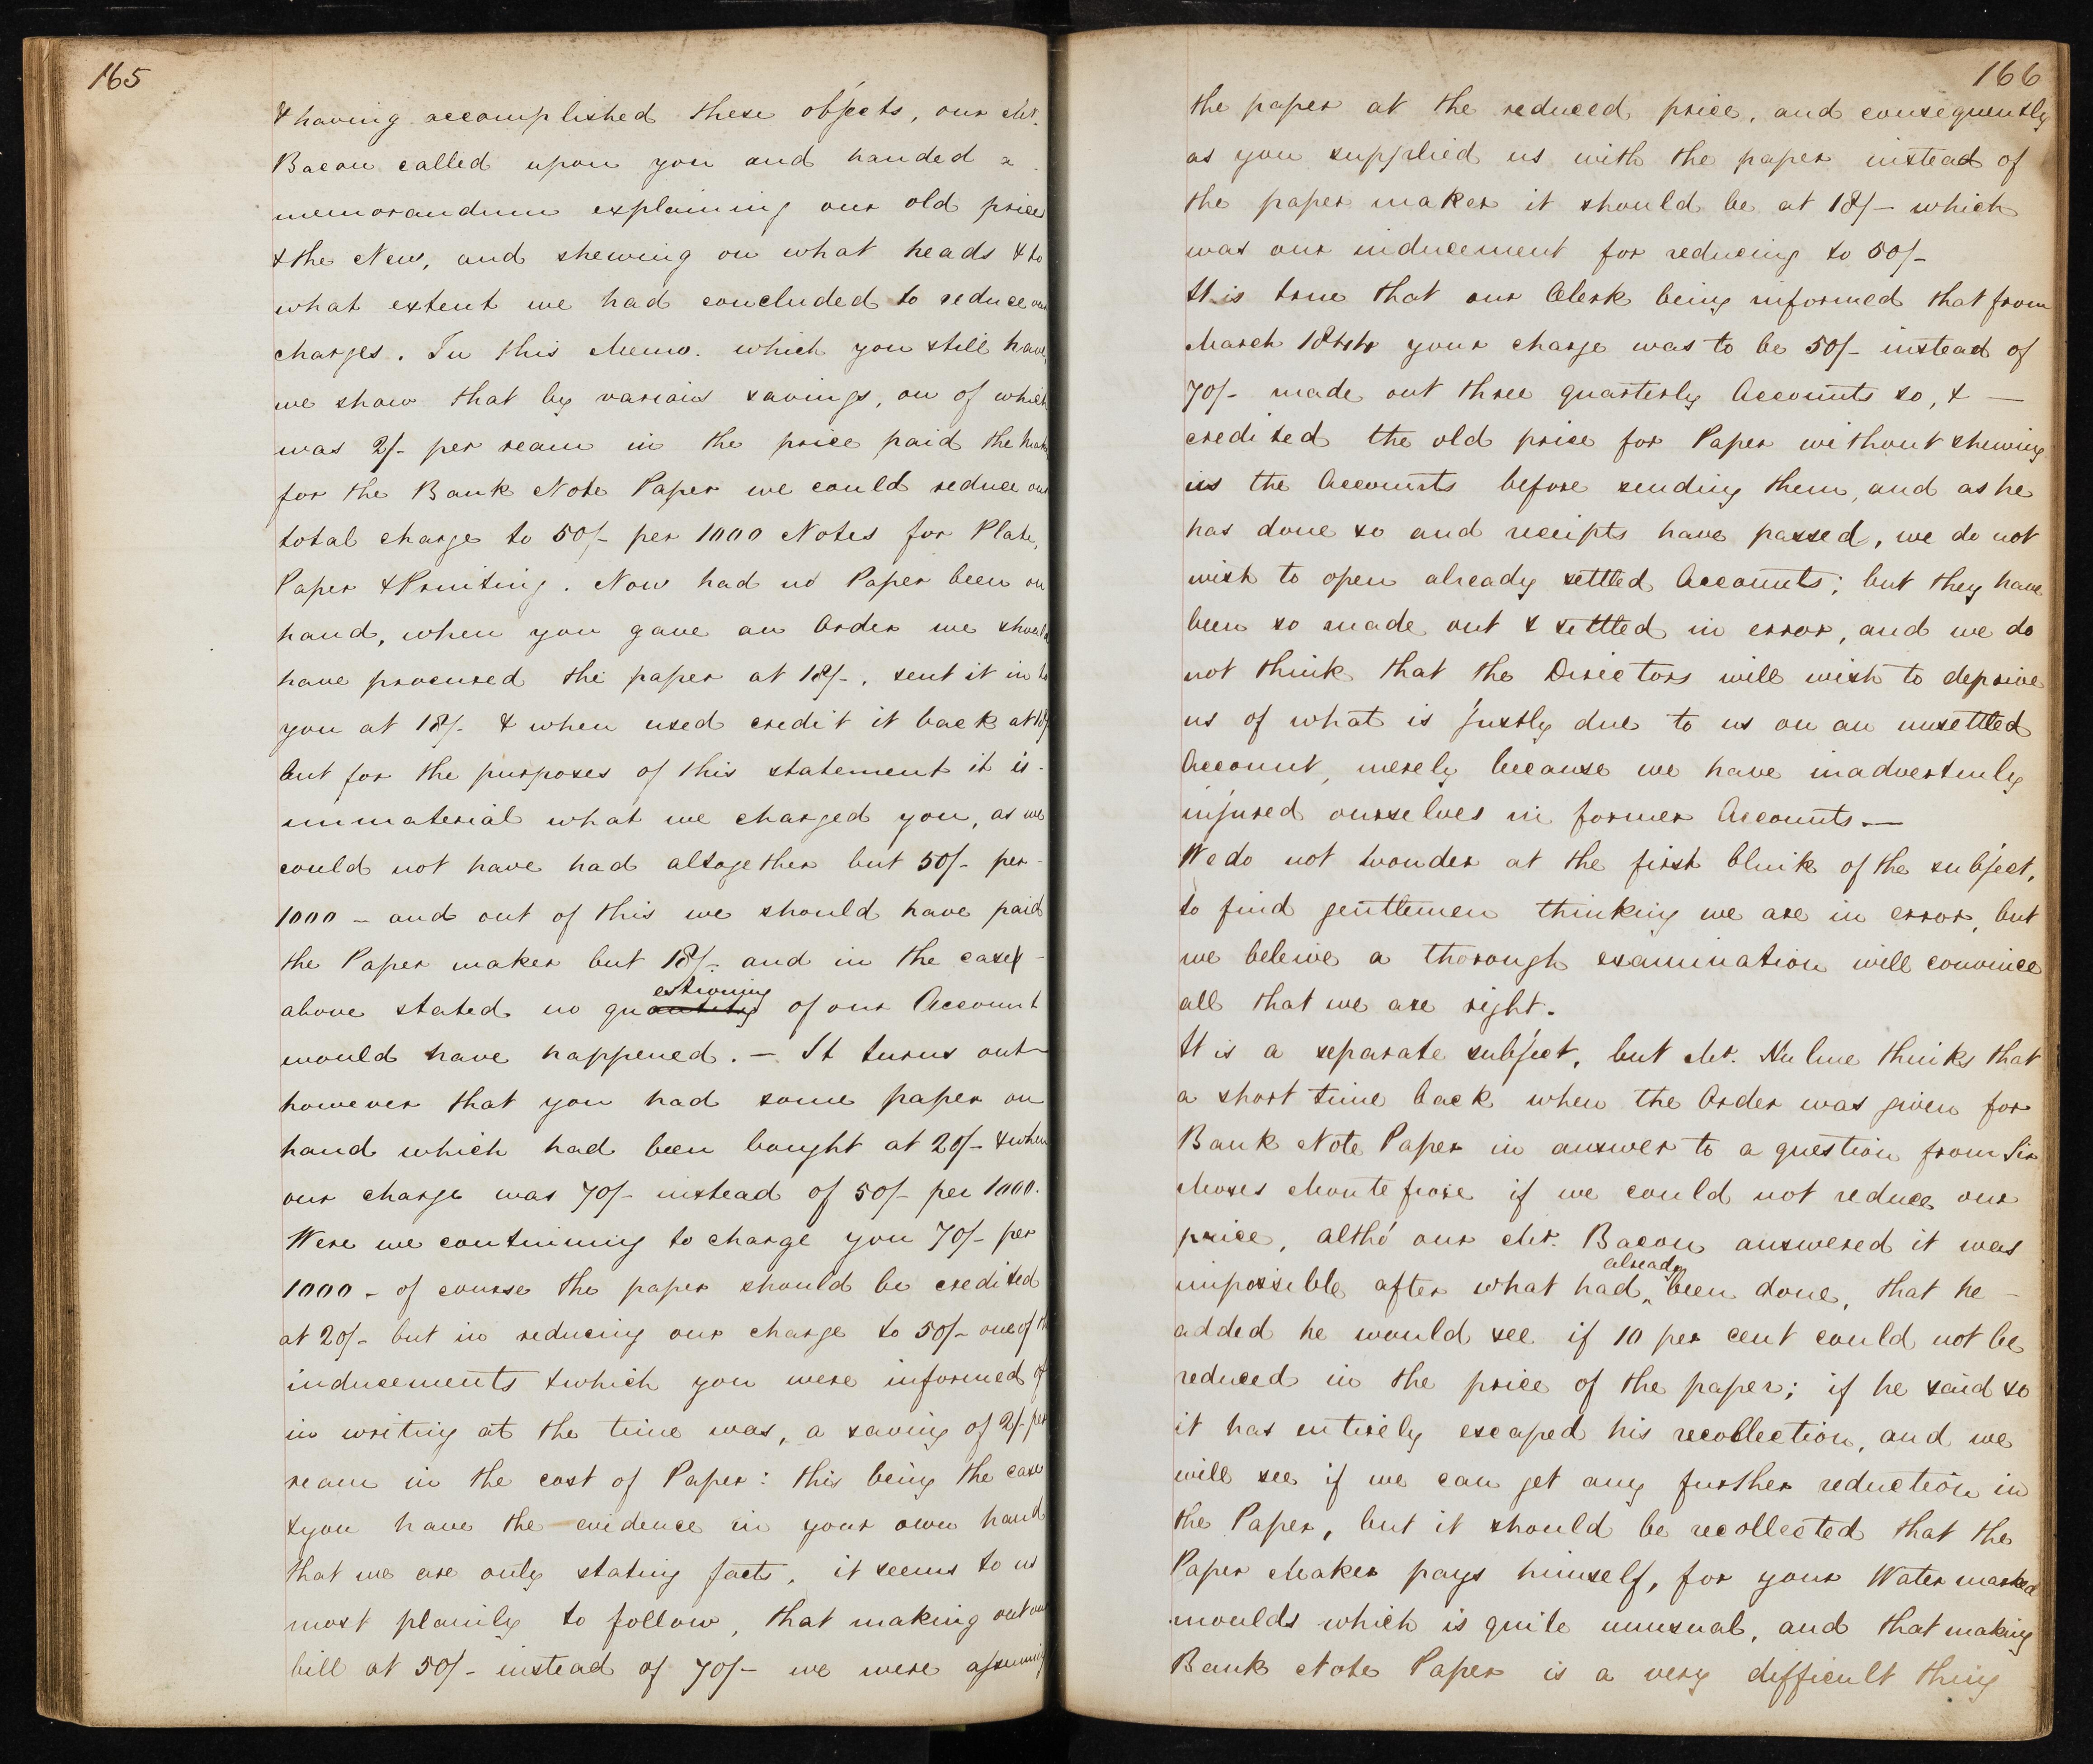 165
& having accomplished these objects, our Mr.
Bacon called upon you and handed a
memorandum explaining our old prices
& the New, and shewing on what heads & to
what extent we had concluded to reduce our
charges. In this Memo. which you still have,
we show that by various savings, on of which
was 2/- per ream in the price paid the
for the Bank Note Paper we could reduce our
total charge to 50/- per 1000 Notes for Plate,
Paper & Printing. Now had no Paper been on
hand, when you gave an Order we should
have procured the paper at 18/-, sent it in to
you at 18/- & when used credit it back at 18/-
but for the purposes of this statement it is
immaterial what we charged you, as we
could not have had altogether but 50/- per
1000 - and out of this we should have paid
the Paper maker but 18/- and in the case
estioning
above stated no quantity of our Account
would have happened. - It turns out
however that you had some paper on
hand which had been bought at 20/- & when
our charge was 70/- instead of 50/- per 1000.
Were we continuing to charge you 70/- per
1000 - of course the paper should be credited
at 20/- but in reducing our charge to 50/- one of the
inducements & which you were informed of
in writing at the time was, a saving of 2/- per
ream in the cost of Paper: this being the case
& you have the evidence in your own hand
that we are only stating facts, it seems to us
most plainly to follow, that making out our
bill at 50/- instead of 70/- we were assuming
166
the paper at the reduced price, and consequently
as you supplied us with the paper instead of
the paper maker it should be at 18/- which
was our inducement for reducing to 50/-
It is true that our Clerk being informed that from
March 1844 your charge was to be 50/- instead of
70/- made out three quarterly Accounts so, & —
credited the old price for Paper without shewing
us the Accounts before sending them, and as he
has done so and receipts have passed, we do not
wish to open already settled Accounts; but they have
been so made out & settled in error, and we do
not think that the Directors will wish to deprive
us of what is justly due to us on an unsettled
Account, merely because we have inadvertenly
injured ourselves in former Accounts. —
We do not wonder at the first blink of the subject,
to find gentlemen thinking we are in error, but
we beleive a thorough examination will convince
all that we are right.
It is a separate subject, but Mr. thinks that
a short time back when the Order was given for
Bank Note Paper in answer to a question from Sir
Moses Montefiore if we could not reduce our
price, altho' our Mr. Bacon answered it was
already
impossible after what had ^ been done, that he —
added he would see if 10 per cent could not be
reduced in the price of the paper; if he said so
it has entirely escaped his recollection, and we
will see if we can get any further reduction in
the Paper, but it should be recollected that the
Paper Maker pays himself, for your Water marked
moulds which is quite unusual, and that making
Bank Note Paper is a very difficult thing